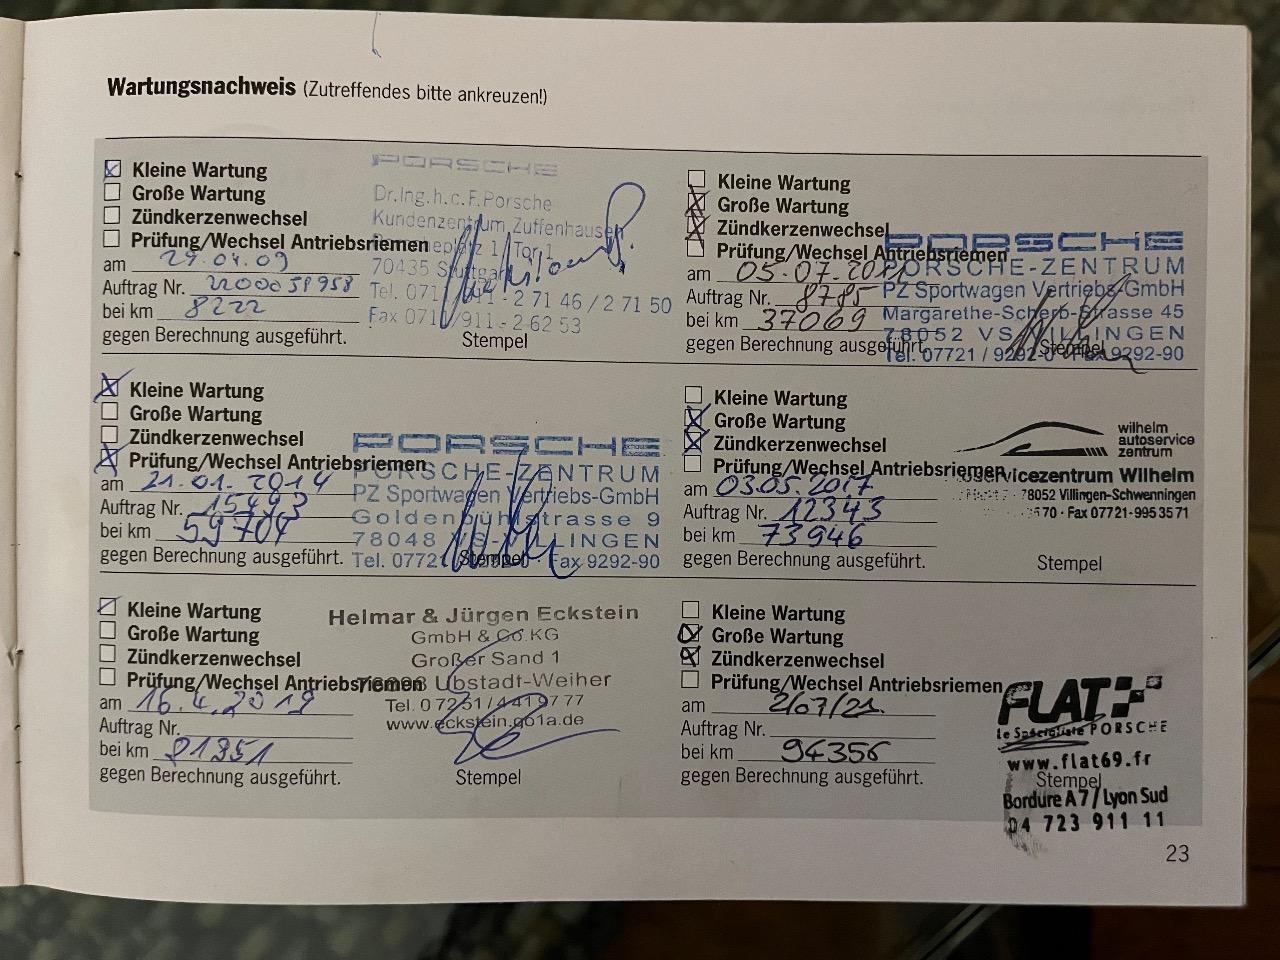 Wartungsnachweis (Zutreffendes bitte ankreuzen!)
Kleine Wartung
Große Wartung
Zündkerzenwechsel
Prüfung/Wechsel Antriebsriemen
am 29.04.09
Auftrag Nr. 2200038958
bei km 8222
gegen Berechnung ausgeführt.
Stempel
PORSCHE
Dr.Ing.h.c.F.Porsche
Kundenzentrum Zuffenhausen
1 / Tor 1
70435 Stuttgart
Tel. 071 - 2 71 46 / 2 71 50
Fax 071 /911 - 2 62 53
Kleine Wartung
Große Wartung
Zündkerzenwechsel
Prüfung/Wechsel Antriebsriemen
am 05.07.20
Auftrag Nr. 8785
bei km 37069
gegen Berechnung ausgeführt.
Stempel
PORSCHE
PORSCHE-ZENTRUM
PZ Sportwagen Vertriebs-GmbH
Margarethe-Scherb-Strasse 45
78052 VS-VILLINGEN
Tel. 07721 / 9292-0 Fax 9292-90
Kleine Wartung
Große Wartung
Zündkerzenwechsel
Prüfung/Wechsel Antriebsriemen
am 21.01.2014
Auftrag Nr. 15493
bei km 59704
gegen Berechnung ausgeführt.
Stempel
PORSCHE
PORSCHE-ZENTRUM
PZ Sportwagen Vertriebs-GmbH
Goldenbühlstrasse 9
78048 VS-VILLINGEN
Tel. 07721 / 9292-0 · Fax 9292-90
Kleine Wartung
Große Wartung
Zündkerzenwechsel
Prüfung/Wechsel Antriebsriemen
am 03.05.2017
Auftrag Nr. 12343
bei km 73946
gegen Berechnung ausgeführt.
Stempel
wilhelm
autoservice
zentrum
servicezentrum Wilhelm
78052 Villingen-Schwenningen
570 · Fax 07721-9953571
Kleine Wartung
Große Wartung
Zündkerzenwechsel
Prüfung/Wechsel Antriebsriemen
am 16.4.2019
Auftrag Nr.
bei km 81351
gegen Berechnung ausgeführt.
Stempel
Helmar & Jürgen Eckstein
GmbH & Co.KG
Großer Sand 1
Ubstadt-Weiher
Tel. 0 72 51 / 4 41 97 77
www.eckstein.go1a.de
Kleine Wartung
Große Wartung
Zündkerzenwechsel
Prüfung/Wechsel Antriebsriemen
am 2/07/21.
Auftrag Nr.
bei km 94356
gegen Berechnung ausgeführt.
Stempel
FLAT
Le Spécialiste PORSCHE
www.flat69.fr
Bordure A7 / Lyon Sud
04 723 911 11
23